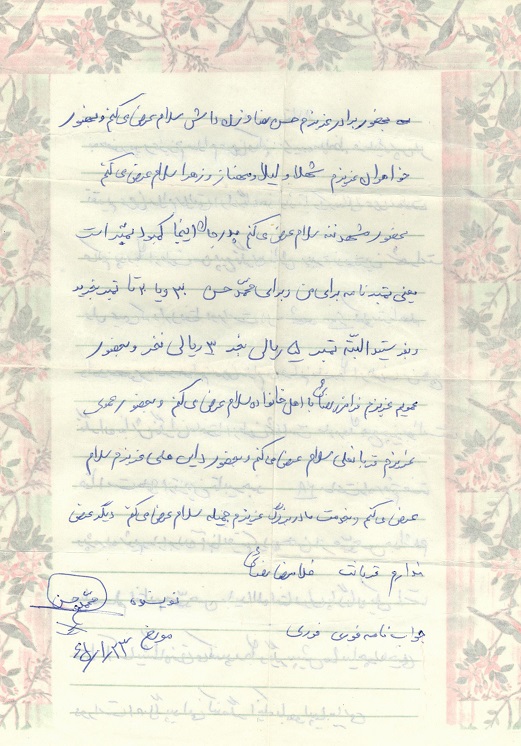 بحضور برادر عزیزم حسن رضا و زن داداش سلام عرض می‌کنم و بحضور
خواهران عزیزم شهلا و لیلا و مهناز و زهرا سلام عرض می‌کنم
بحضور مشهد ننه سلام عرض می‌کنم پدر جان اینجا کمبود تمبر است
یعنی تمبر نامه برای من و برای محمد حسن ۳۰ و یا ۲۰ تا تمبر بخرید
و بفرستید البته تمبر ۵ ریالی بخر ۳ ریالی نخر و بحضور
عمویم عزیزم فرامرز رضائی با اهل خانواده سلام عرض می‌کنم و بحضور عموی
عزیزم قربانعلی سلام عرض می‌کنم و بحضور دایی علی عزیزم سلام
عرض می‌کنم و بخدمت مادربزرگ عزیزم جمیله سلام عرض می‌کنم دیگر عرضی
ندارم قربانت غلامرضا رضائی
نویسنده محمد حسن
جواب نامه فوری فوری مورخ ۶۵/۱/۲۳